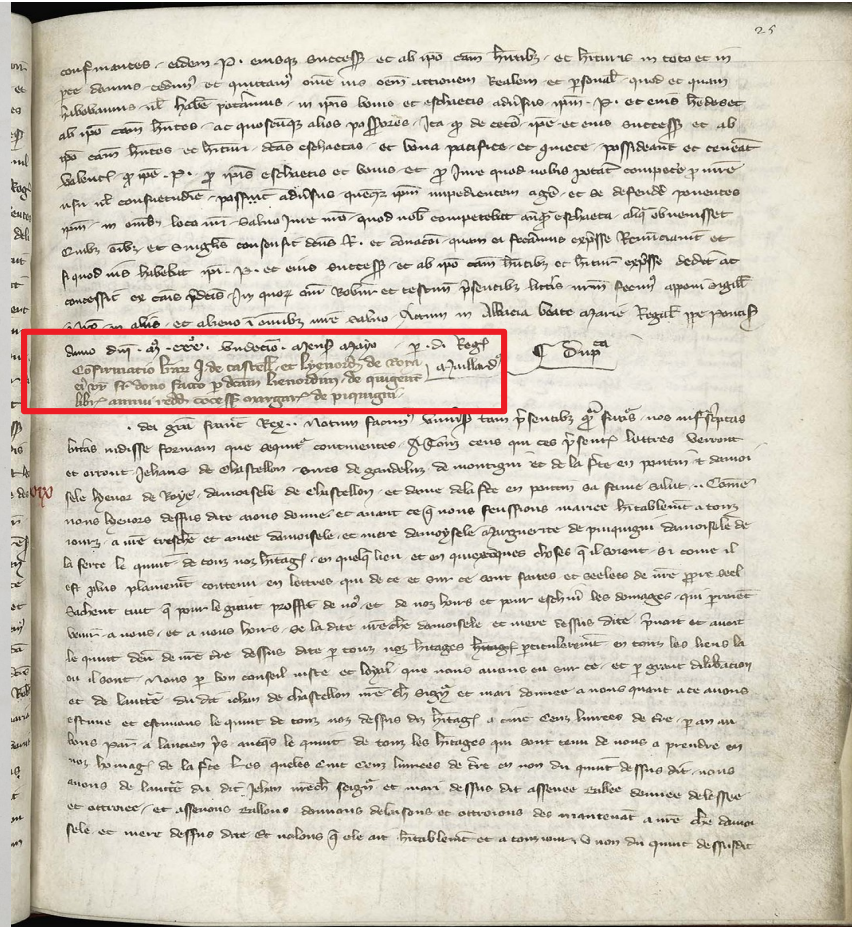 25
confirmantes . eidem . P . eiusque success et ab ipo cam hntibz . et hituris in toto et in
pte damus cedim et quittam omne ius oem actionem Realem et psonal . quod et quam
habebamus ul habe poteramus . in ipis bonis et eschaetis aduersus ipm . P . et eius hedes et
ab ipo cam hntes . ac quoscuq alios possores . Ita q de ceto . ipe et eius success et ab
ipo cam hntes et hituri . dcas eschaetas . et bona pacifice . et quiete . possideant et teneant
. P . p ipis eschaetis et bonis . et p Iure quod nobis potat compete p nram
usu ul consuetudie . possint aduersus quecq ipm impedientem age . et se defende ponentes
ipm . in omibz loco nri . Saluo Iure nro . quod nob competebat anq eschaeta . aliq obuenisset
Quibz oibz et singulis consensit dcus R . et donacoi . quam ei feceramus expsse Renunciauit et
si quod ius habebat ipi . P . et eius success . et ab ipo cam hntibz et hitur expsse dedit ac
concessit ex cais pdcis . In quor oim Robur et testim psentibz litteris nrm fecim apponi sigill
Nro in aliis . et alieno i omibz iure saluo . Actum in Abbacia beate Marie Regal ppe pontis
Anno dni . m . ccc . undecio . mens mayo . p . d . Reg
Maillard
Dupta
Cofirmatio lrar J . de castell . et lyenordis de Roya
ei ux sr dono facto p dcam lienordim . de quigent
libr annui redd cocess margar de piquigni
. dei gra franc Rex . . Notum facim uniuss tam psentibz q futuris . nos infrascriptas
litteras uidisse formam que sequit continentes . A Touz ceus qui ces psentes lettres verront
et orront Jehans de Chastellon . sires de gandeluz . de montigni et de la fte en pontiu & damoi
XIX
sele lyenor de Roye . damoisele de Chastellon . et dame de la fte en pontiu sa fame salut . . Come
nous lyenors dessus dite aions donne . et auant ce q nous feussions mariee hitablemt a touz
iourz . a nre treschere et amee damoisele . et mere damoysele marguerite de piquigni damoisele de
la ferte le quint de touz noz hitag . en quelq lieu . et en quexcques choses q il soient . si come il
est plus plainemt contenu en lettres . qui de ce et sur ce sont faites et seelees de nre ppre seel
Sachent tuit q pour le grant proffit de no . et de noz hoirs et pour eschiuer les domages . qui porroient
venir a nous . et a nous hoirs . se la dite nre chere damoisele et mere dessus dite . pnoit et auoit
le quint den de nre tre dessus dite p touz noz hitages hitag pticulierment en touz les liens la
ou il sont . Nous p bon conseil iuste et loyal que nous auons eu sur ce . et p grant deliberacion
et de lautorite du dit iehan de chastellon nre ch sign et mari donnee a nous quant a ce auons
estime et estimons le quint de touz noz dessus diz hitag a cinc cenz liurees de tre . p an au
bons par a lancien pis . auecqs le quint de touz les hitages qui sont tenu de nous a prendre en
noz homag de la fte Les queles cinc cenz liurees de tre en non du quint dessus dit . nous
auons de lautorite du dit Jehan nre ch seign et mari dessus dit assenee baillee donnee delessiee
et ottroiee . et assenons baillons donnons delaisons et ottroions des maintenat a nre chere damoi
sele et mere dessus dite Et uolons q ele ait hitablemt et a touz iours en non du quint dessusdit